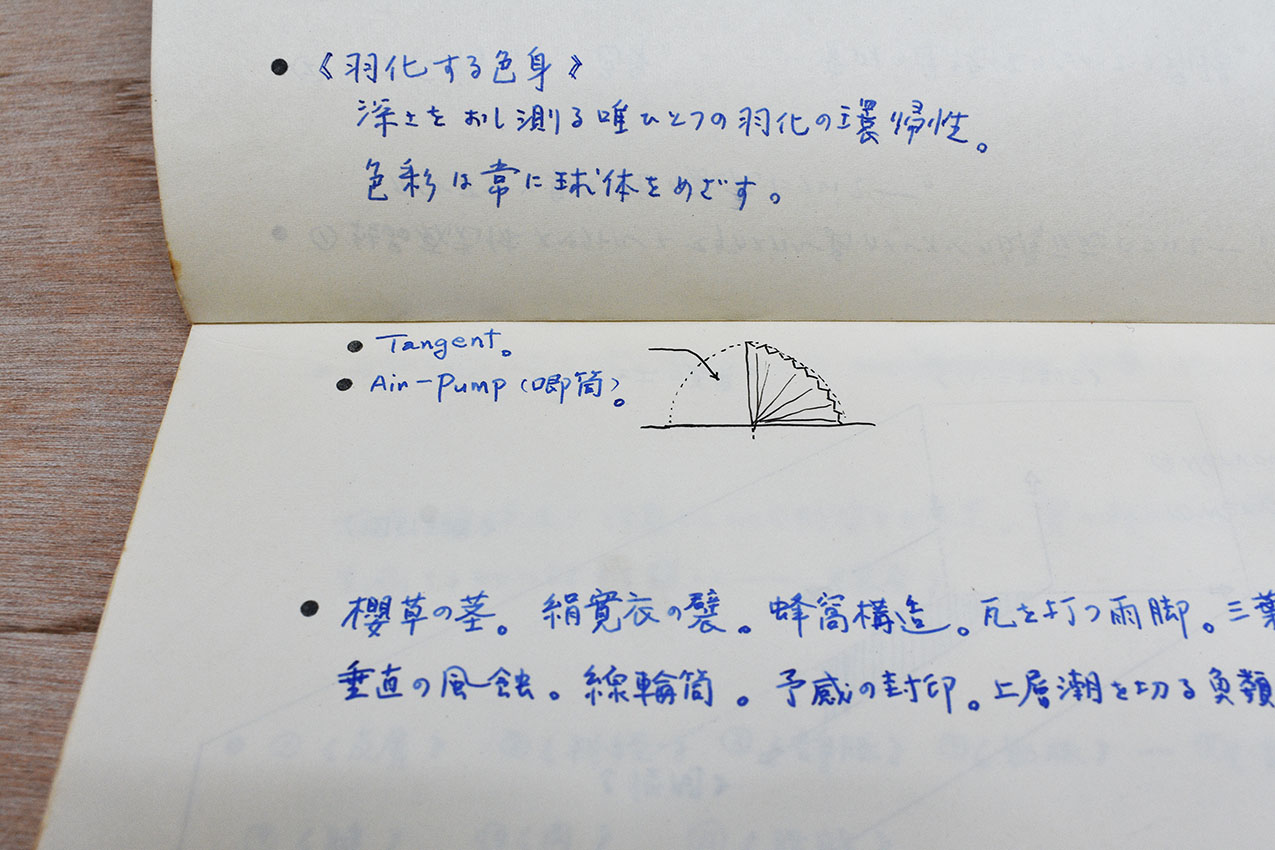 ● 《羽化する色身》
深さをおし測る唯ひとつの羽化の環帰性。
色彩は常に球体をめざす。
● Tangent。
● Air-Pump(喞筒)。
● 櫻草の茎。絹寛衣の襞。蜂窩構造。瓦を打つ雨脚。三葉
垂直の風蝕。線輪筒。予感の封印。上層潮を切る魚類